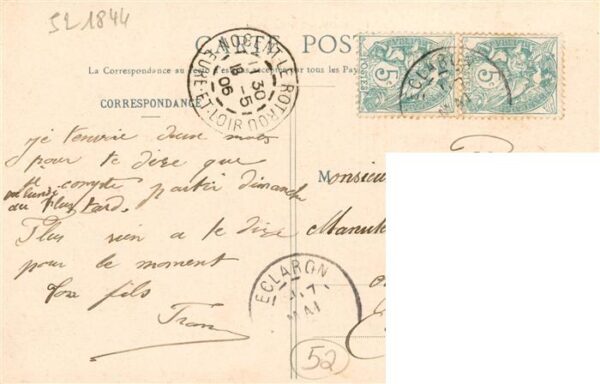 521844
CARTE POST
La Correspondance au tous les Pay
CORRESPONDANCE
NOGENT-LE-ROTROU
EURE-ET-LOIR
30
18 - 5
06
5c
5c
ECLARON
je t'envoie deux mots
pour te dire que
je compte partir dimanche
ou lundi
au plus tard.
Plus rien a te dire
pour le moment
Ton fils
Monsieu
Manu
ECLARON
17
MAI
52